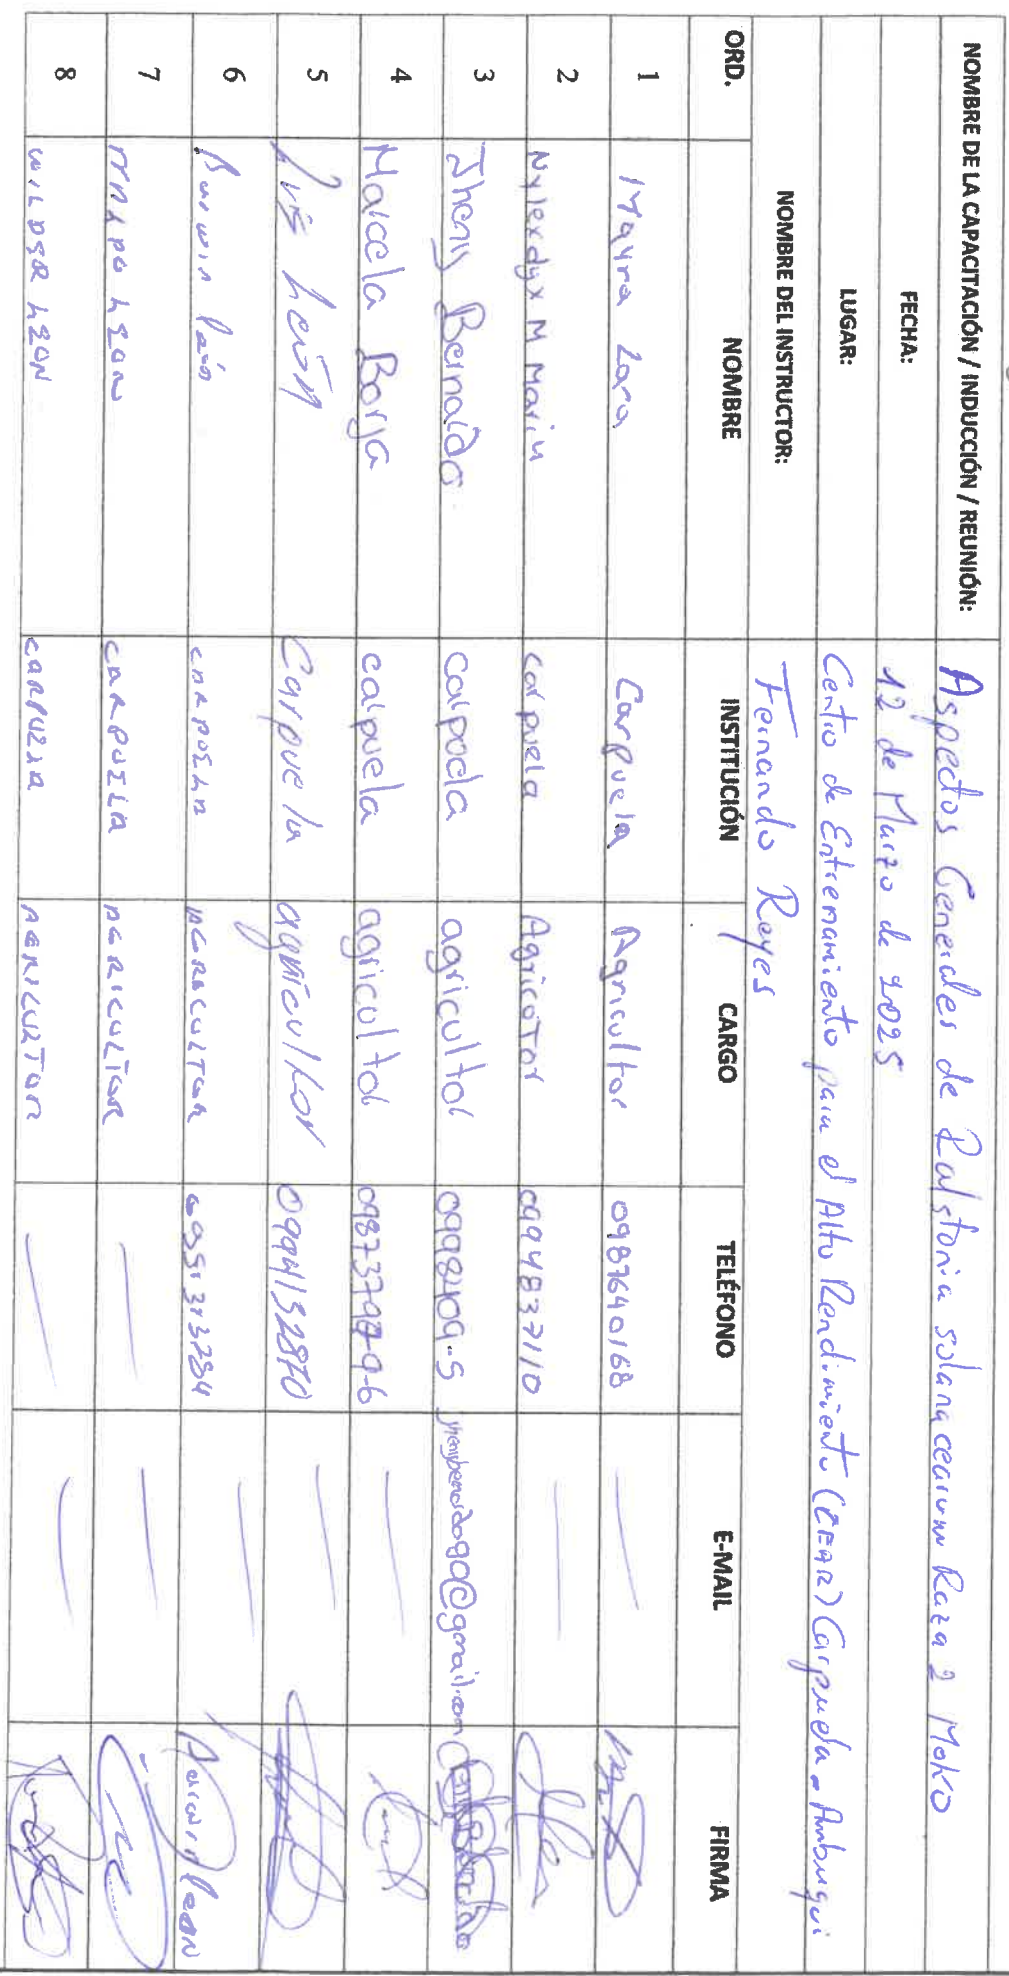 NOMBRE DE LA CAPACITACIÓN / INDUCCIÓN / REUNIÓN: Aspectos Generales de Ralstonia solanacearum Raza 2 Moko
FECHA: 12 de Marzo de 2025
LUGAR: Centro de Entrenamiento para el Alto Rendimiento (CEAR) Carpuela - Ambuquí
NOMBRE DEL INSTRUCTOR: Fernando Reyes
ORD. NOMBRE INSTITUCIÓN CARGO TELÉFONO E-MAIL FIRMA
1 Mayra Lara Carpuela Agricultor 0987640168
2 Nylexdyx M Marin Carpuela Agricotor 0994837110
3 Jheny Bernaldo Carpoela agricultor 0998409-5 jhenybernardo90@gmail.com
4 Marcela Borja carpuela agricultor
5 Luis León Carpuela agricultor 0994132870
6 Darwin León CARPUELA AGRICULTOR
7 LEON CARPUELA AGRICULTOR
8 WILDER LEON CARPUELA AGRICULTOR